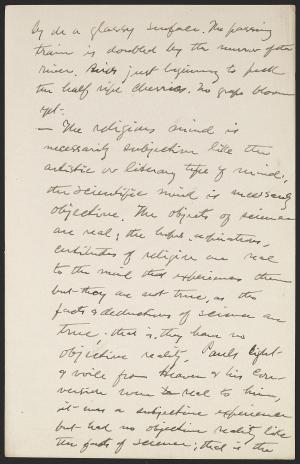 by on a glassy surface. The passing
train is doubled by the mirror of the
river. Birds just beginning to peck
the half ripe cherries. No grape bloom
yet.
— The religious mind is
necessarily subjective like the
artistic or literary type of mind;
the scientific mind is necessarily
objective. The objects of science
are real; the hopes, aspirations,
certitudes of religion are real
to the mind that experiences them
but they are not true, as the
facts & deductions of science are
true; that is, they have no
objective reality. Pauls light
& voice from Heaven & his con-
version were real to him,
it was a subjective experience
but had no objective reality, like
the facts of science; that is the